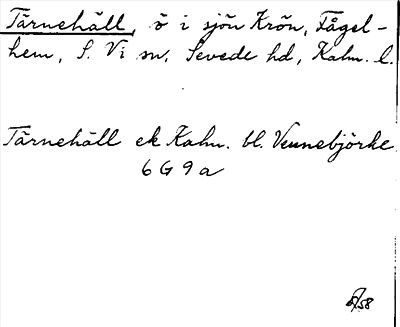 Tärnehäll, ö i sjön Krön, Fågel-
hem, S. Vi sn, Sevede hd, Kalm. l.
Tärnehäll ek Kalm. bl. Vennebjörke
6 G 9 a
/58